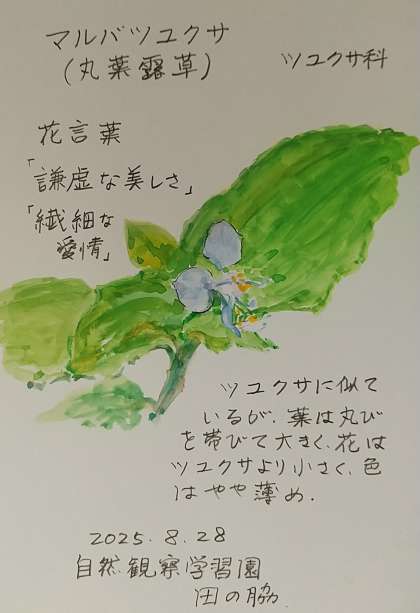 マルバツユクサ
(丸葉露草)
ツユクサ科
花言葉
「謙虚な美しさ」
「繊細な
愛情」
ツユクサに似て
いるが、葉は丸び
を帯びて大きく、花は
ツユクサより小さく、色
はやや薄め.
2025.8.28
自然観察学習園
田の脇